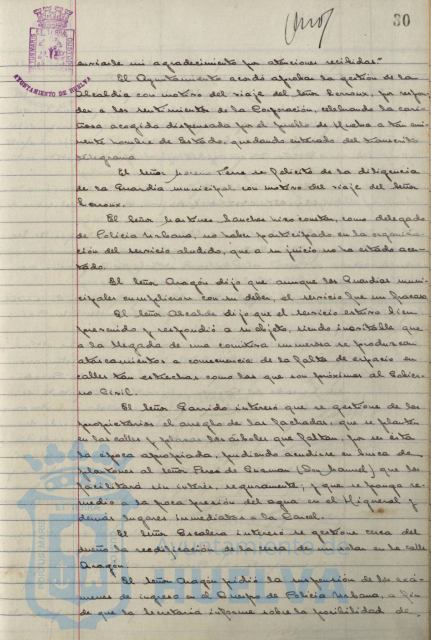 30
AYUNTAMIENTO DE HUELVA
enviarle mi agradecimiento por atenciones recibidas."
El Ayuntamiento acordó aprobar la gestión de la
Alcaldía con motivo del viaje del Señor Lerroux, por respon-
der a los sentimientos de la Corporación, celebrando la cari-
ñosa acogida dispensada por el pueblo de Huelva a tan emi-
nente hombre de Estado, quedando enterado del transcrito
telegrama.
El Señor se felicitó de la diligencia
de la Guardia municipal con motivo del viaje del Señor
Lerroux.
El Señor Martínez Sánchez hizo constar, como delegado
de Policía Urbana, no haber participado en la organiza-
ción del servicio aludido, que a su juicio no ha estado acer-
tado.
El Señor Aragón dijo que aunque los Guardias muni-
cipales cumplieron con su deber, el servicio fue un fracaso.
El Señor Alcalde dijo que el servicio estuvo bien
prevenido y respondió a su objeto, siendo inevitable que
a la llegada de una comitiva inmensa se produzcan
atascamientos a consecuencia de la falta de espacio en
calles tan estrechas como las que son próximas al Gobier-
no Civil.
El Señor Garrido interesó que se gestione de los
propietarios el arreglo de las fachadas, que se planten
en las calles y plazas los árboles que faltan, por ser esta
la época apropiada, pudiendo acudirse en busca de
plantones al Señor Pérez de Guzmán (Don Manuel) que los
facilitará sin interés, seguramente; y que se ponga re-
medio a la poca presión del agua en el Higueral y
demás lugares inmediatos a la Cárcel.
El Señor Escalera interesó se gestione cerca del
dueño la reedificación de la cerca de un solar en la calle
Aragón.
El Señor Aragón pidió la suspensión de los exá-
menes de ingreso en el Cuerpo de Policía Urbana, a fin
de que la Secretaría informe sobre la posibilidad de